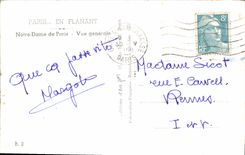 PARIS... EN FLANANT
Notre-Dame de Paris - Vue générale
Que ça passe vite
Margot
Madame Sicot
rue E. Cavell
Rennes
I et V
8F
B. 2